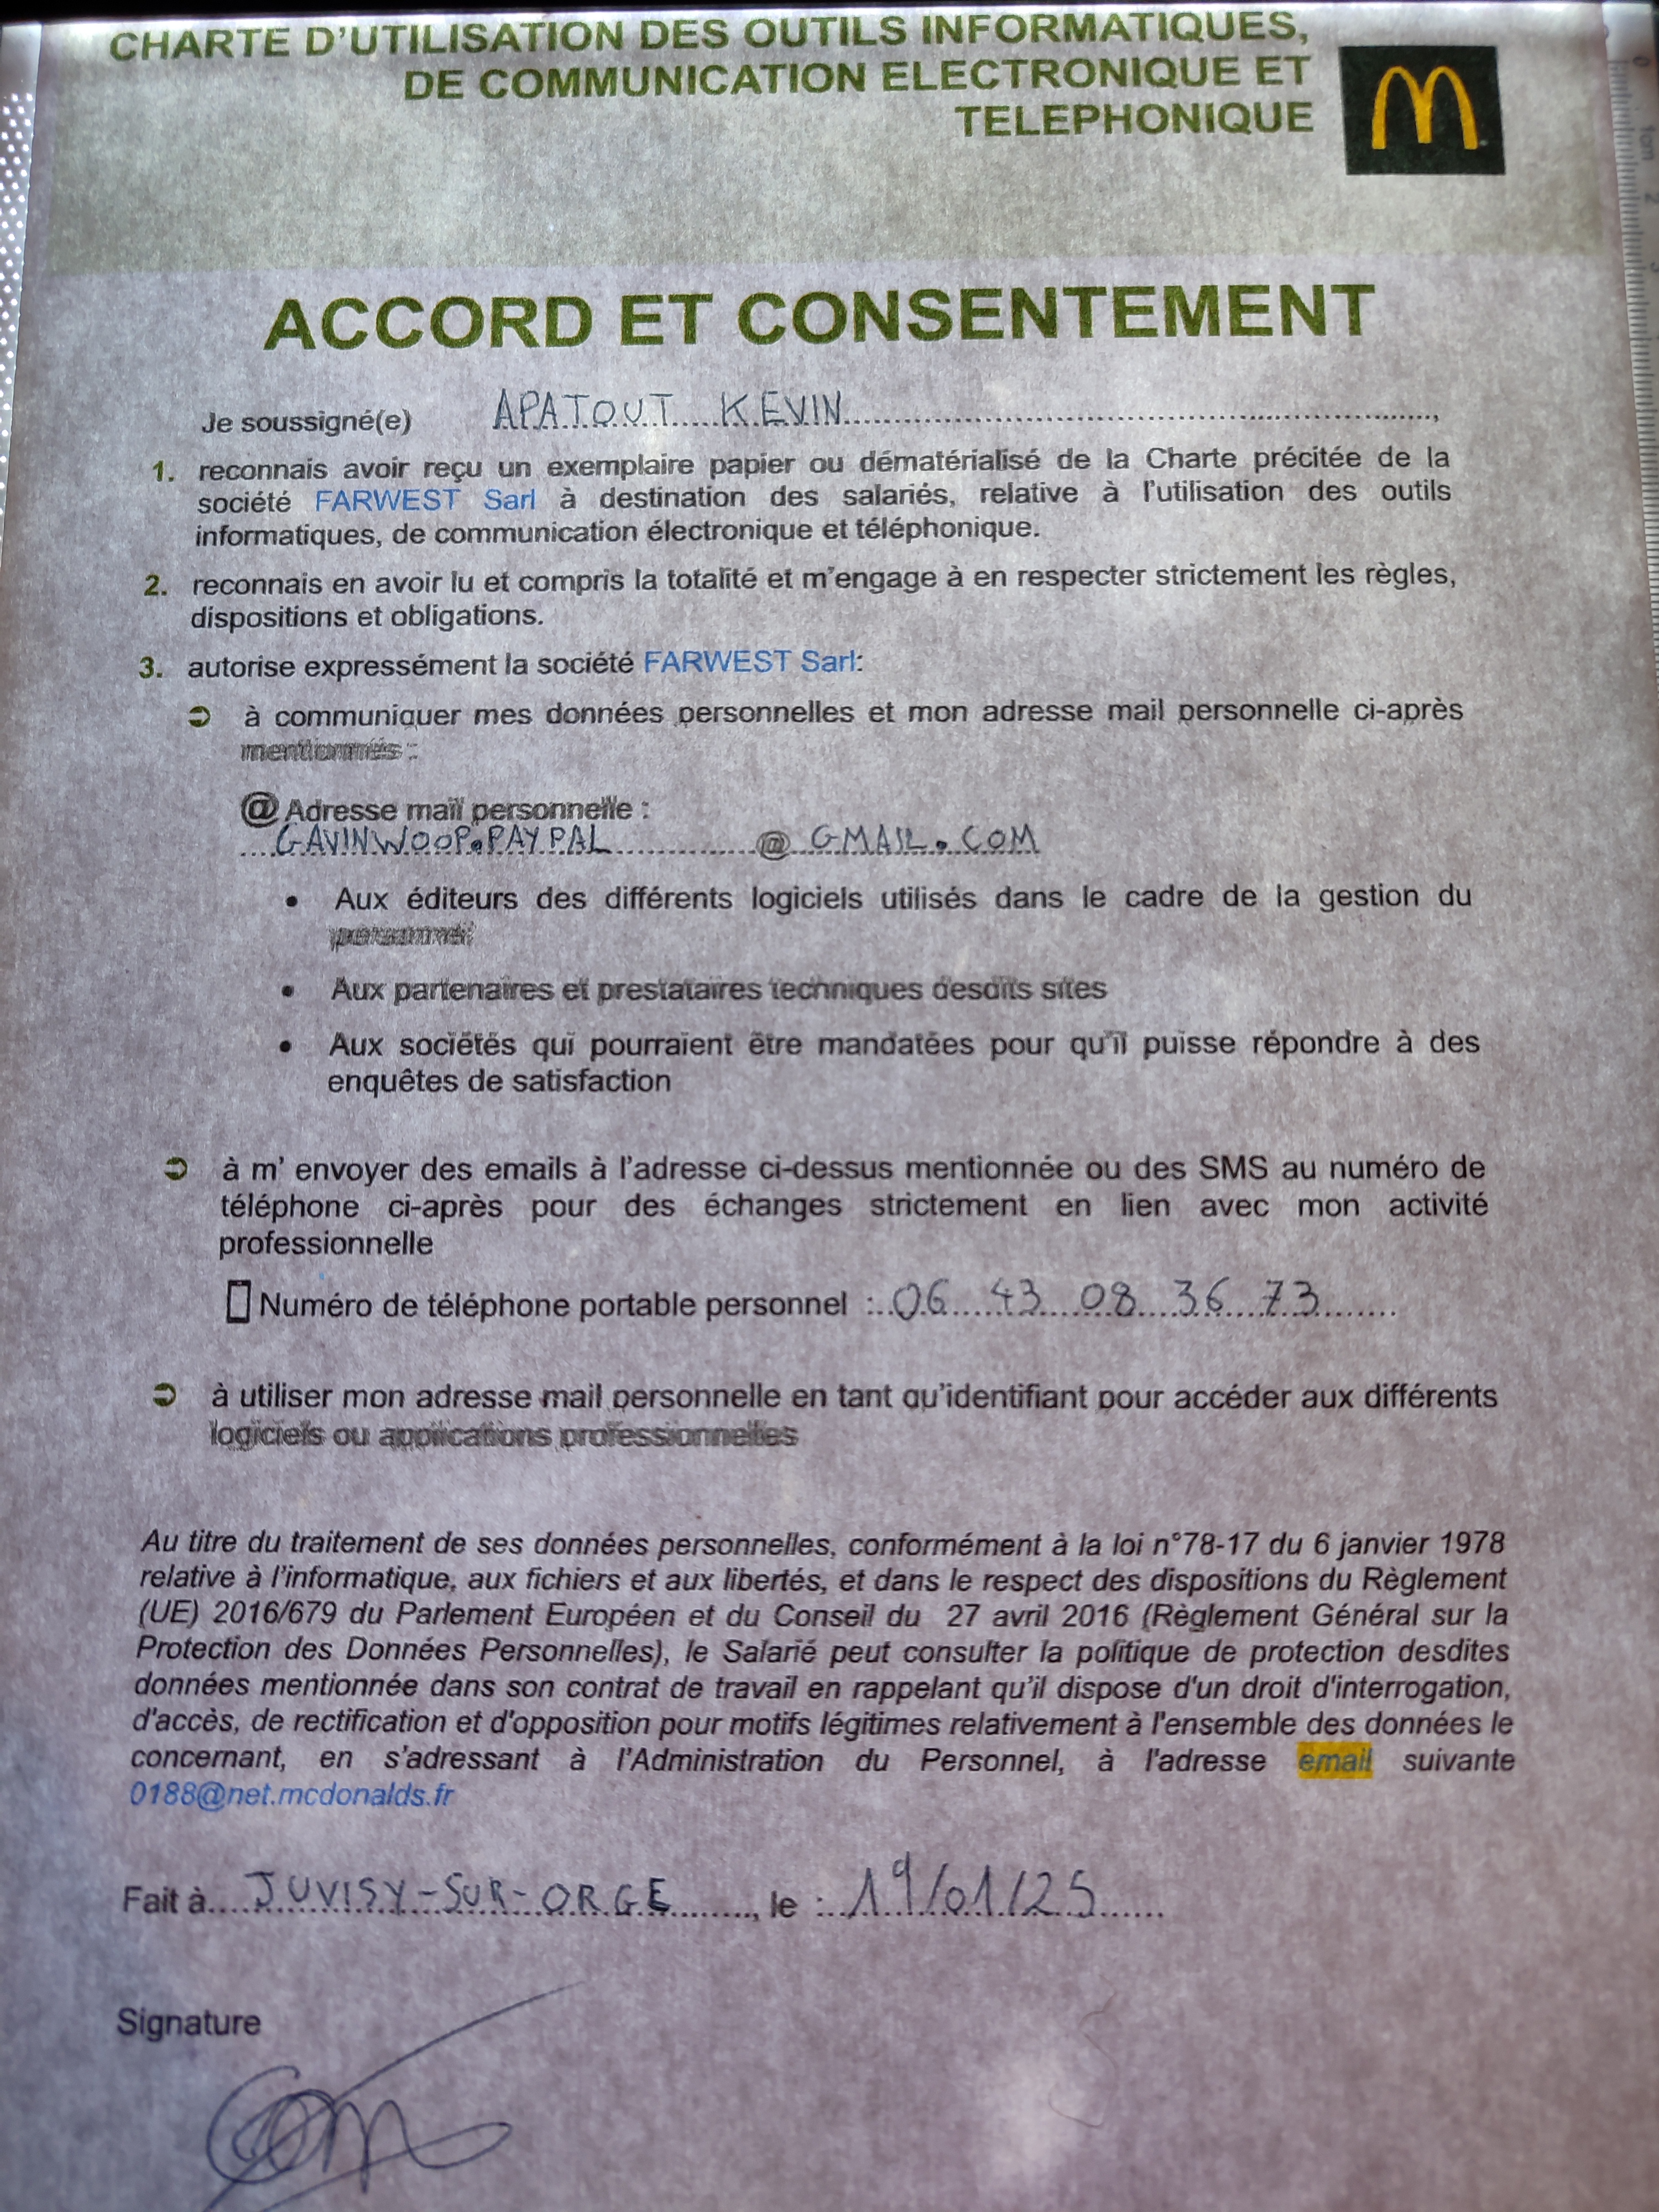 CHARTE D'UTILISATION DES OUTILS INFORMATIQUES,
DE COMMUNICATION ELECTRONIQUE ET
TELEPHONIQUE
ACCORD ET CONSENTEMENT
Je soussigné(e) APATOUT KEVIN,
1. reconnais avoir reçu un exemplaire papier ou dématérialisé de la Charte précitée de la
société FARWEST Sarl à destination des salariés, relative à l'utilisation des outils
informatiques, de communication électronique et téléphonique.
2. reconnais en avoir lu et compris la totalité et m'engage à en respecter strictement les règles,
dispositions et obligations.
3. autorise expressément la société FARWEST Sarl:
➲ à communiquer mes données personnelles et mon adresse mail personnelle ci-après
mentionnés :
@ Adresse mail personnelle :
GAVINWOOP.PAYPAL @ GMAIL.COM
• Aux éditeurs des différents logiciels utilisés dans le cadre de la gestion du
personnel
• Aux partenaires et prestataires techniques desdits sites
• Aux sociétés qui pourraient être mandatées pour qu'il puisse répondre à des
enquêtes de satisfaction
➲ à m' envoyer des emails à l'adresse ci-dessus mentionnée ou des SMS au numéro de
téléphone ci-après pour des échanges strictement en lien avec mon activité
professionnelle
Numéro de téléphone portable personnel : 06 43 08 36 73
➲ à utiliser mon adresse mail personnelle en tant qu'identifiant pour accéder aux différents
logiciels ou applications professionnelles
Au titre du traitement de ses données personnelles, conformément à la loi n°78-17 du 6 janvier 1978
relative à l'informatique, aux fichiers et aux libertés, et dans le respect des dispositions du Règlement
(UE) 2016/679 du Parlement Européen et du Conseil du 27 avril 2016 (Règlement Général sur la
Protection des Données Personnelles), le Salarié peut consulter la politique de protection desdites
données mentionnée dans son contrat de travail en rappelant qu'il dispose d'un droit d'interrogation,
d'accès, de rectification et d'opposition pour motifs légitimes relativement à l'ensemble des données le
concernant, en s'adressant à l'Administration du Personnel, à l'adresse email suivante
0188@net.mcdonalds.fr
Fait à JUVISY-SUR-ORGE, le : 19/01/25
Signature